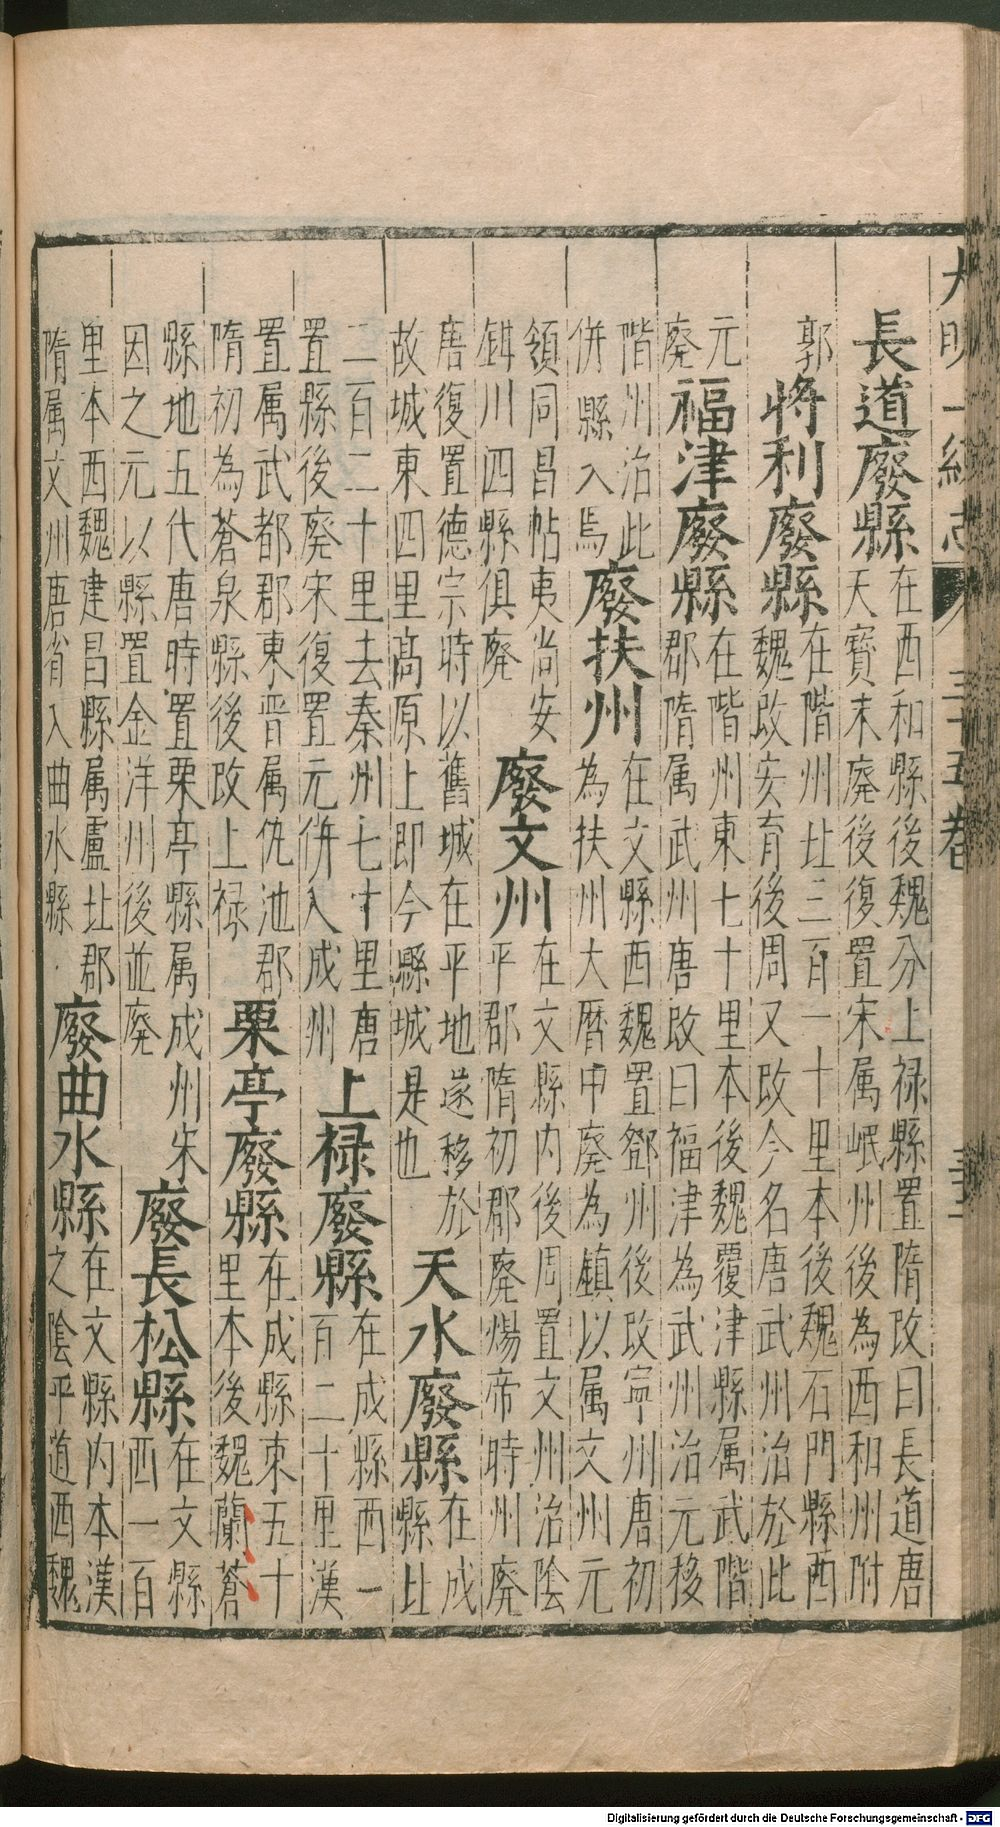 大明一統志 三十五卷
長道廢縣在西和縣後魏分上禄縣置隋改曰長道唐
天寳末廢後復置宋属岷州後為西和州附
郭將利廢縣在階州北三百一十里本後魏石門縣西
魏改安育後周又改今名唐武州治於此
元
廢福津廢縣在階州東七十里本後魏覆津縣属武階
郡隋属武州唐改曰福津為武州治元移
階州治此
併縣入焉廢扶州在文縣西魏置鄧州後改寧州唐初
為扶州大曆中廢為鎮以属文州元
領同昌帖夷尚安
鉗川四縣俱廢廢文州在文縣内後周置文州治陰
平郡隋初郡廢煬帝時州廢
唐復置德宗時以舊城在平地遂移於
故城東四里高原上即今縣城是也天水廢縣在成
縣北
二百二十里去秦州七十里唐
置縣後廢宋復置元併入成州上禄廢縣在成縣西一
百二十里漢
置属武都郡東晋属仇池郡
隋初為蒼泉縣後改上禄栗亭廢縣在成縣東五十
里本後魏蘭蒼
縣地五代唐時置栗亭縣属成州宋
因之元以縣置金洋州後並廢廢長松縣在文縣
西一百
里本西魏建昌縣属盧北郡
隋属文州唐省入曲水縣廢曲水縣在文縣内本漢
之陰平道西魏
Digitalisierung gefördert durch die Deutsche Forschungsgemeinschaft - DFG